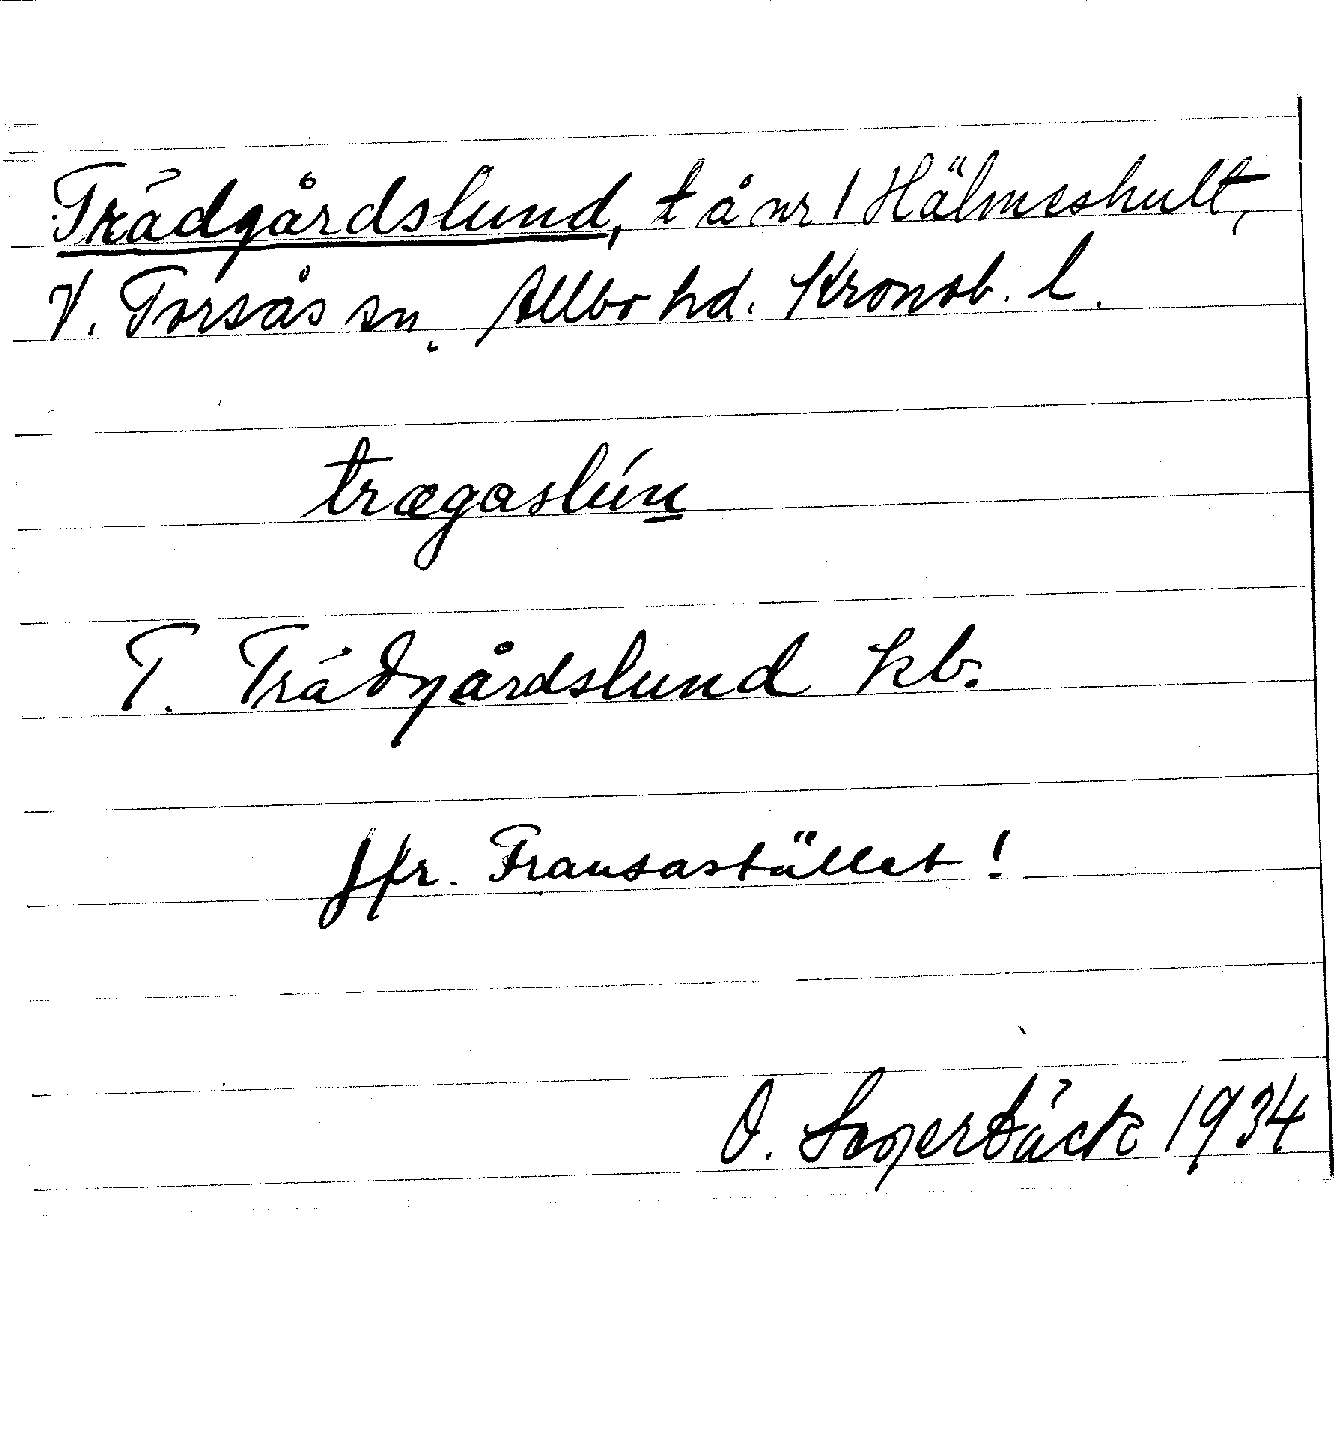 Trädgårdslund, t å nr 1 Hälmeshult,
V. Torsås sn. Allbo hd. Kronob. l.
trægaslún
T. Trädgårdslund kb.
Jfr. Fransastället!
O. Lagerbäck 1934